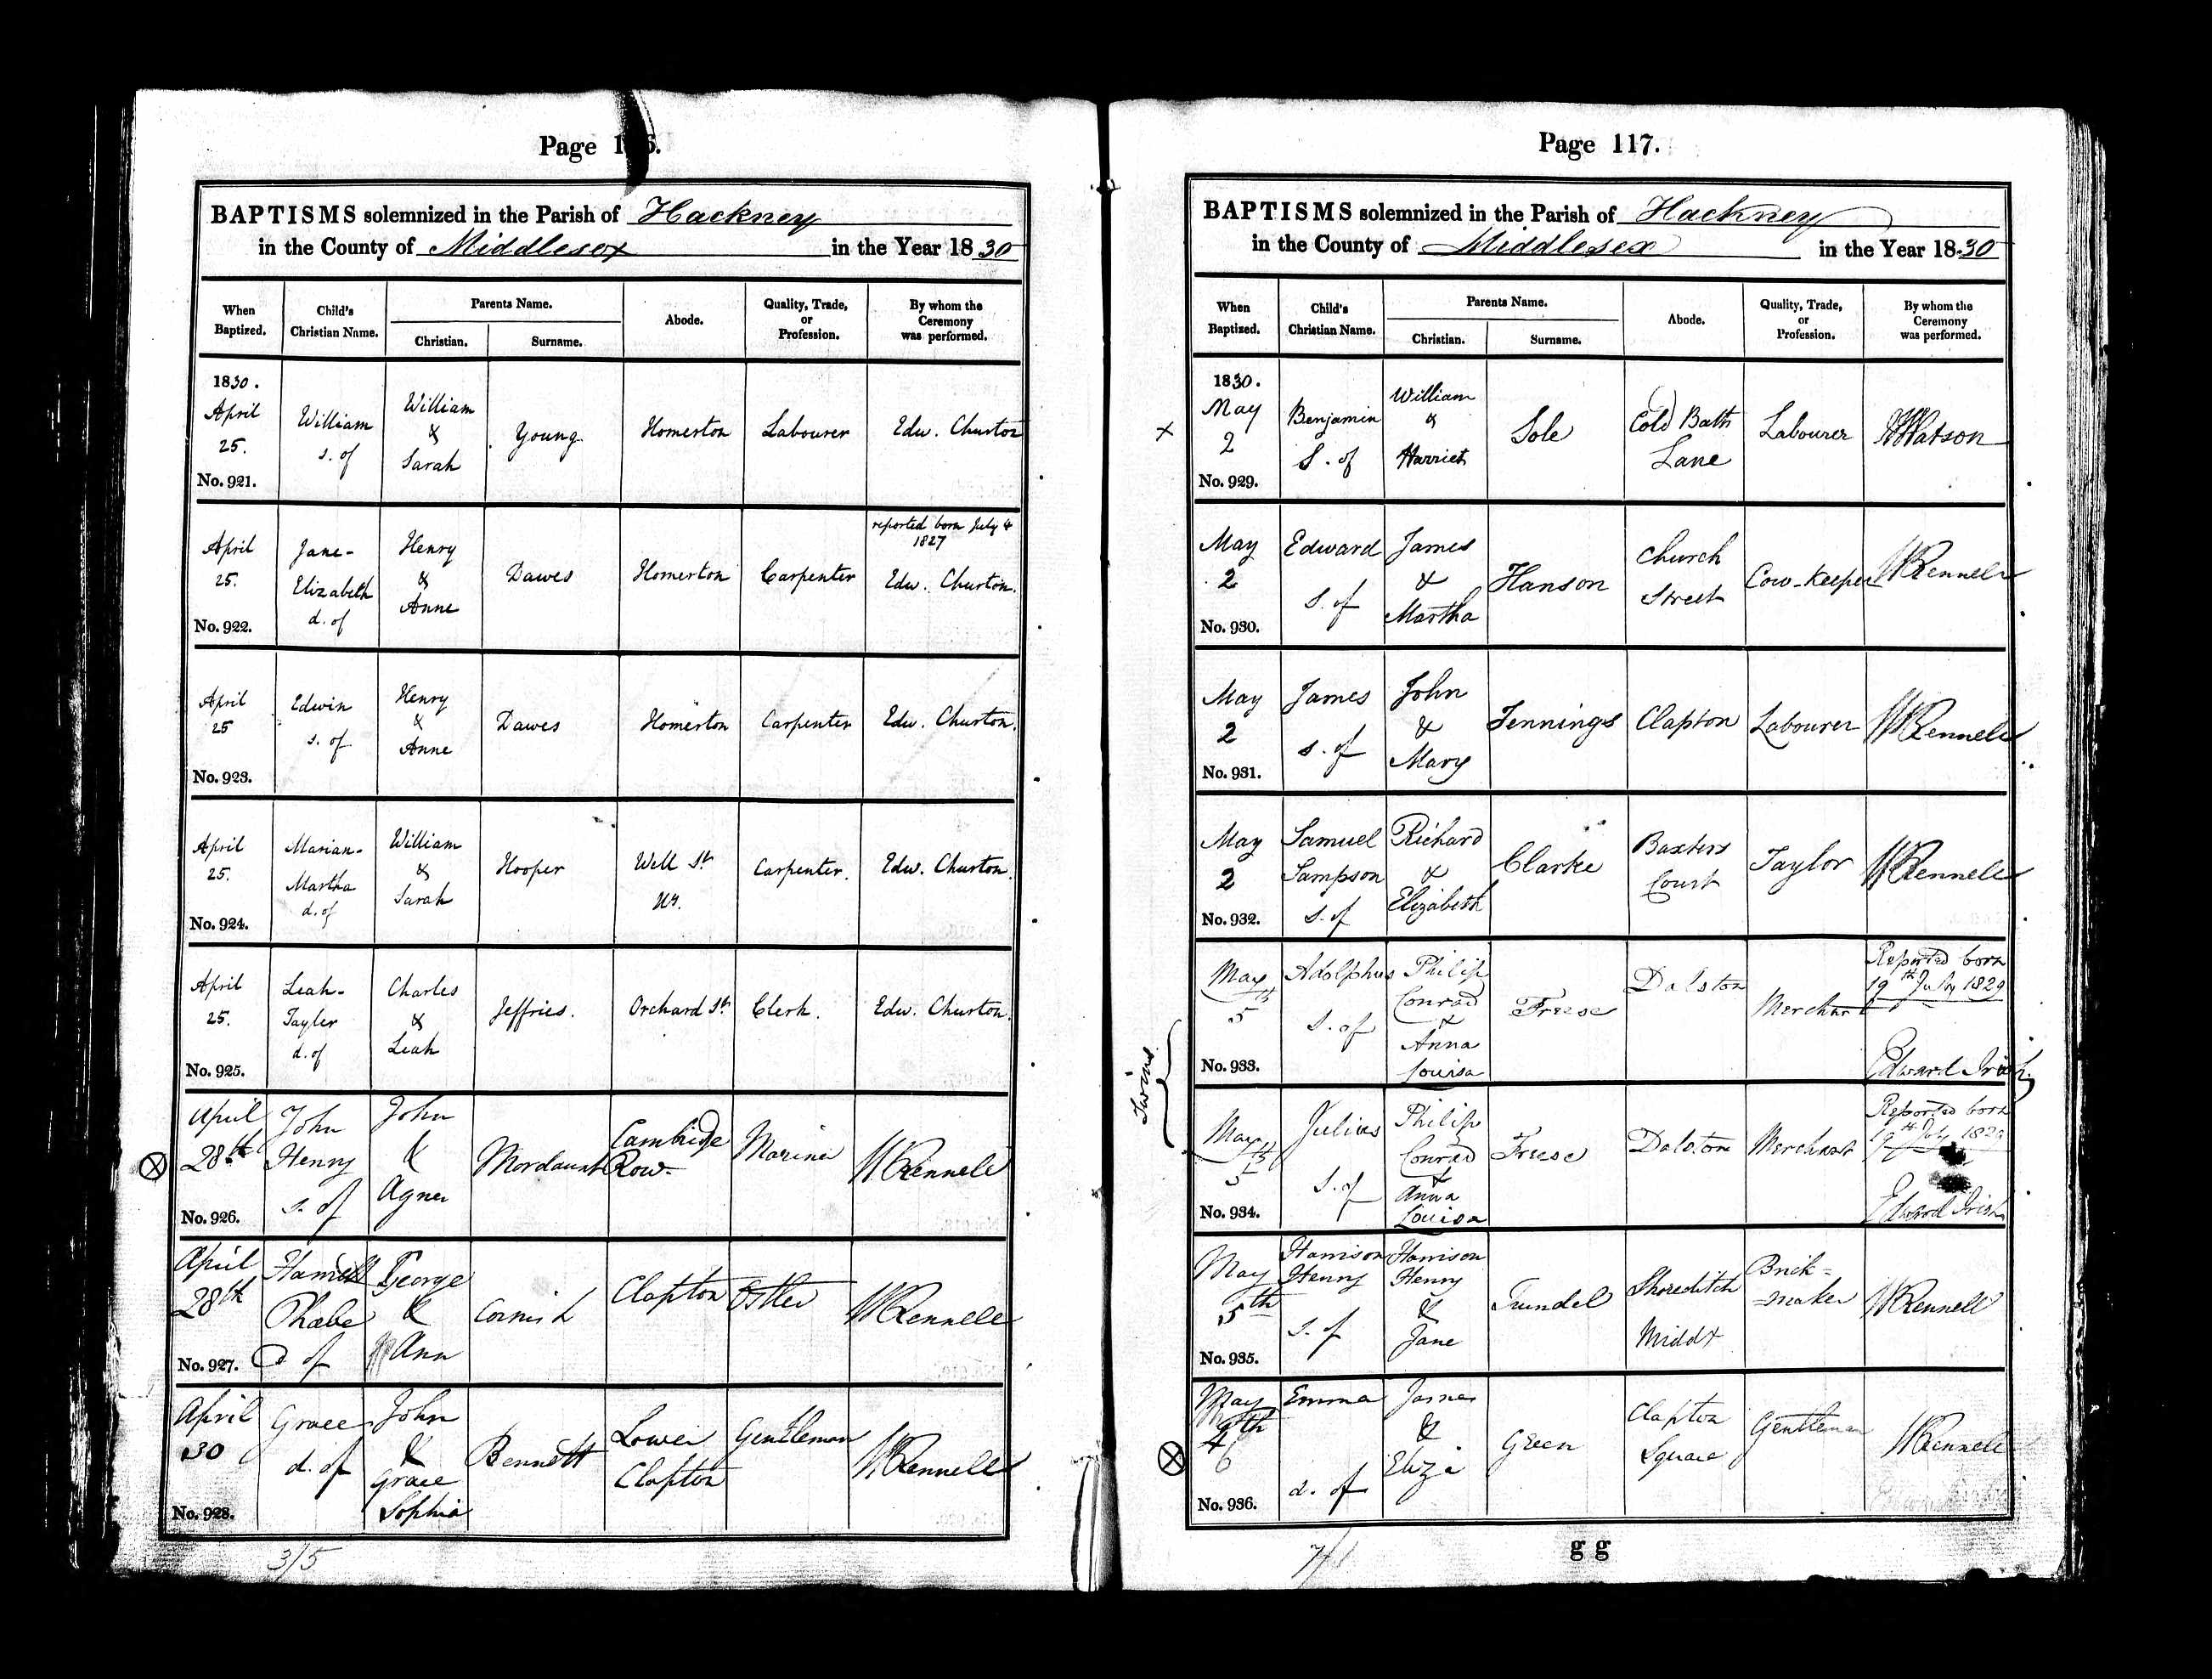 Page 1 6.
BAPTISMS solemnized in the Parish of Hackney
in the County of Middlesex in the Year 1830
When Baptized.
Child's Christian Name.
Parents Name.
Christian.
Surname.
Abode.
Quality, Trade, or Profession.
By whom the Ceremony was performed.
1830.
April
25.
No. 921.
William
s. of
William
&
Sarah
Young
Homerton
Labourer
Edw. Churton
April
25.
No. 922.
Jane-
Elizabeth
d. of
Henry
&
Anne
Dawes
Homerton
Carpenter
reported born July 4
1827
Edw. Churton.
April
25
No. 923.
Edwin
s. of
Henry
&
Anne
Dawes
Homerton
Carpenter
Edw. Churton.
April
25.
No. 924.
Marian-
Martha
d. of
William
&
Sarah
Hooper
Well St.
Carpenter.
Edw. Churton.
April
25.
No. 925.
Leah-
Tayler
d. of
Charles
&
Leah
Jeffries.
Orchard St.
Clerk.
Edw. Churton.
April
28th
No. 926.
John
Henry
s. of
John
&
Agnes
Mordaunt
Cambridge
Row
Mariner
Rennell
April
28th
No. 927.
Phœbe
d of
George
&
Ann
Cornish
Clapton
Ostler
Rennell
April
30
No. 928.
Grace
d. of
John
&
Grace
Sophia
Bennett
Lower
Clapton
Gentleman
Rennell
3/5
Page 117.
BAPTISMS solemnized in the Parish of Hackney
in the County of Middlesex in the Year 1830
When Baptized.
Child's Christian Name.
Parents Name.
Christian.
Surname.
Abode.
Quality, Trade, or Profession.
By whom the Ceremony was performed.
x
1830.
May
2
No. 929.
Benjamin
S. of
William
&
Harriet
Sole
Cold Bath
Lane
Labourer
Watson
May
2
No. 930.
Edward
S. of
James
&
Martha
Hanson
Church
Street
Cow-Keeper
Rennell
May
2
No. 931.
James
s. of
John
&
Mary
Jennings
Clapton
Labourer
Rennell
May
2
No. 932.
Samuel
Sampson
s. of
Richard
&
Elizabeth
Clarke
Baxters
Court
Taylor
Rennell
Twins
May
5th
No. 933.
Adolphus
s. of
Philip
Conrad
&
Anna
Louisa
Freese
Dalston
Merchant
Reported born
19th July 1829
Edward Irish
May
5th
No. 934.
Julius
s. of
Philip
Conrad
&
Anna
Louisa
Freese
Dalston
Merchant
Reported born
19th July 1829
Edward Irish
May
5th
No. 935.
Harrison
Henry
s. of
Harrison
Henry
&
Jane
Trundel
Shoreditch
Middx
Brick-
-maker
Rennell
May
6
No. 936.
Emma
d. of
James
&
Eliza
Green
Clapton
Square
Gentleman
Rennell
g g